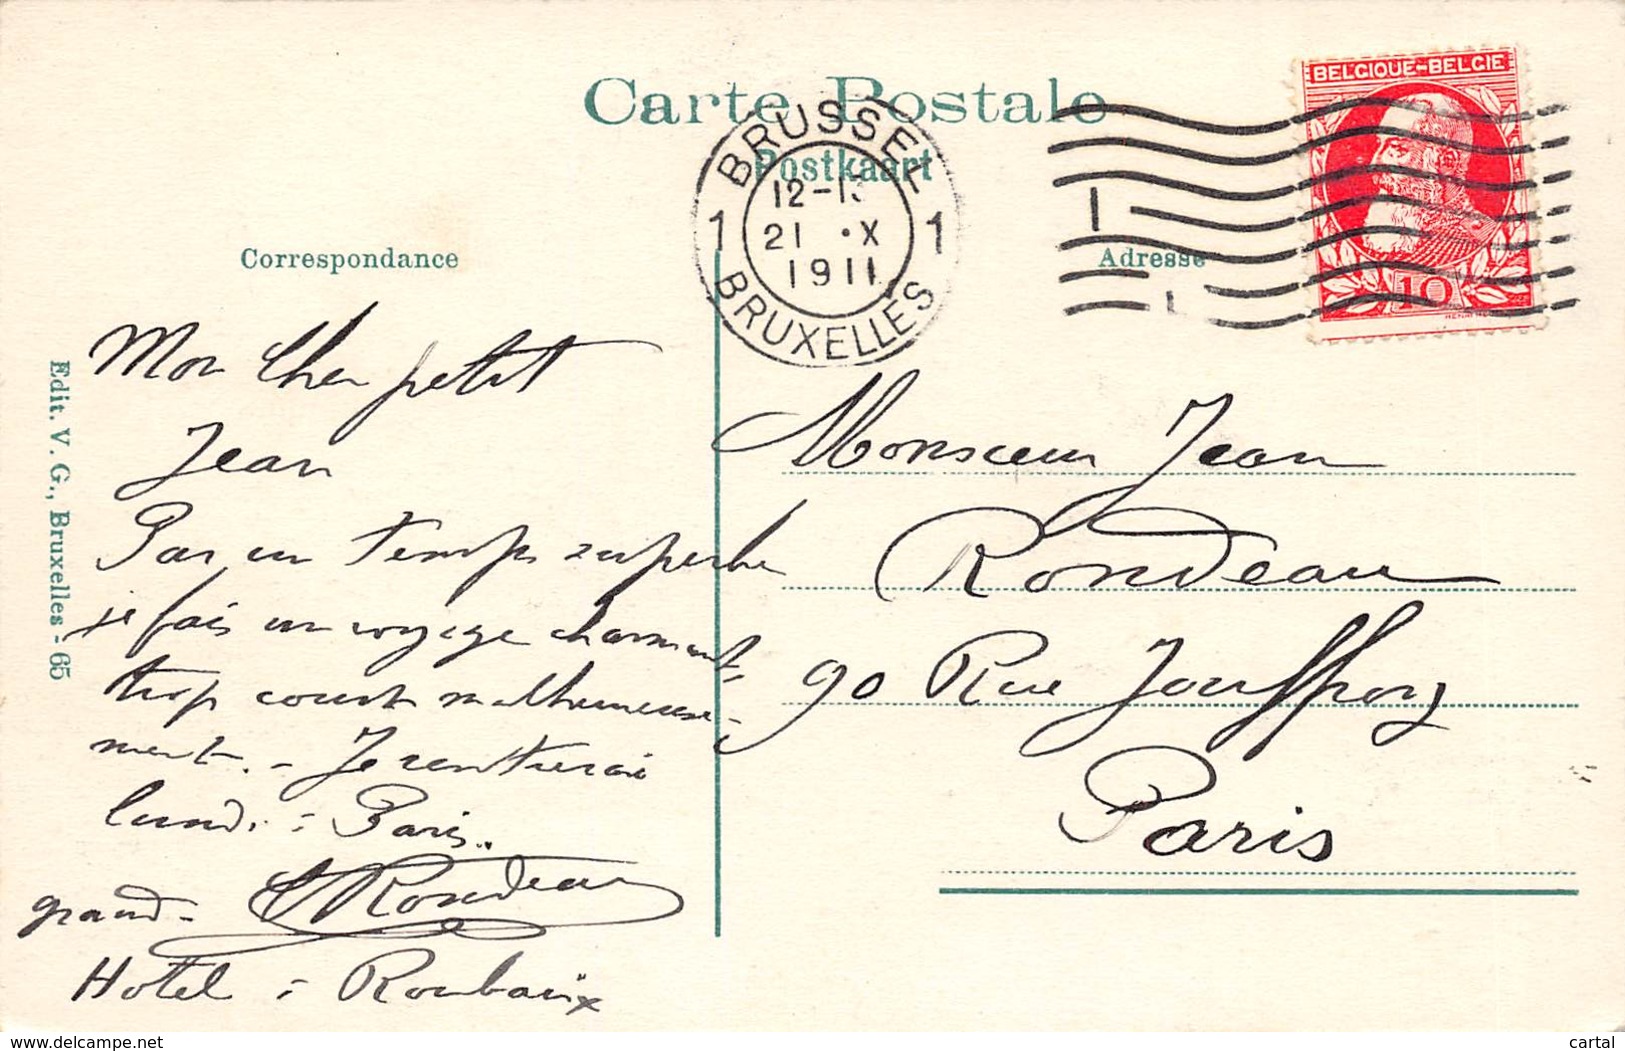 Carte Postale
Postkaart
BRUSSEL
12-13
21 · X
1911
1 1
BRUXELLES
BELGIQUE-BELGIE
10
Correspondance
Adresse
Edit. V. G., Bruxelles - 65
Mon Cher petit
Jean
Par un temps superbe
je fais un voyage charmant,
trop court malheureuse-
ment. - Je rentrerai
lundi à Paris.
Rondeau
grand-
Hotel à Roubaix
Monsieur Jean
Rondeau
90 Rue Jouffroy
Paris
www.delcampe.net
cartal